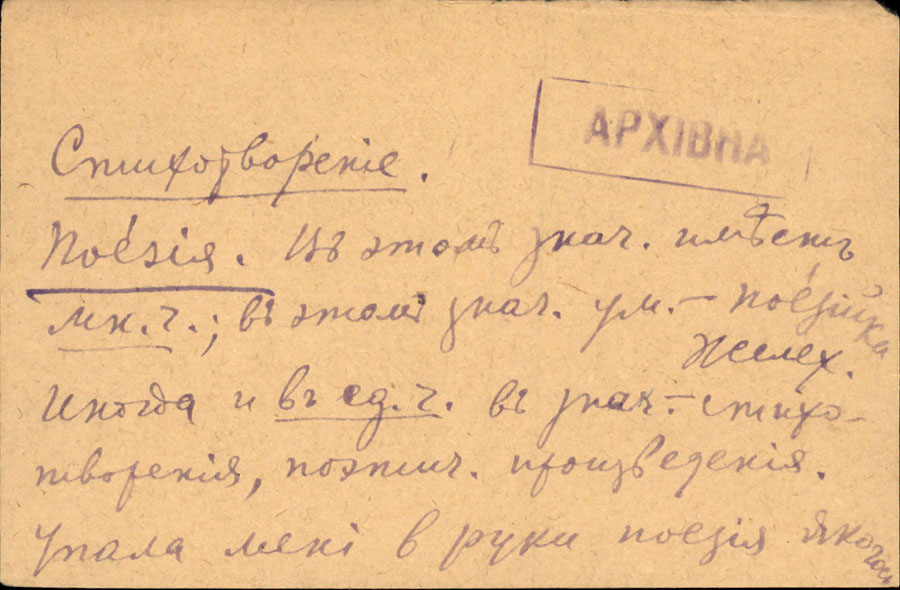 АРХІВНА
Стихотвореніе.
Пое́зія. Въ этомъ знач. имѣетъ
мн. ч.; въ этомъ знач. ум. – пое́зійка
Желех.
Иногда и въ ед. ч. въ знач. – стихо-
творенія, поэтич. произведенія.
Упала мені в руки поезія якогось